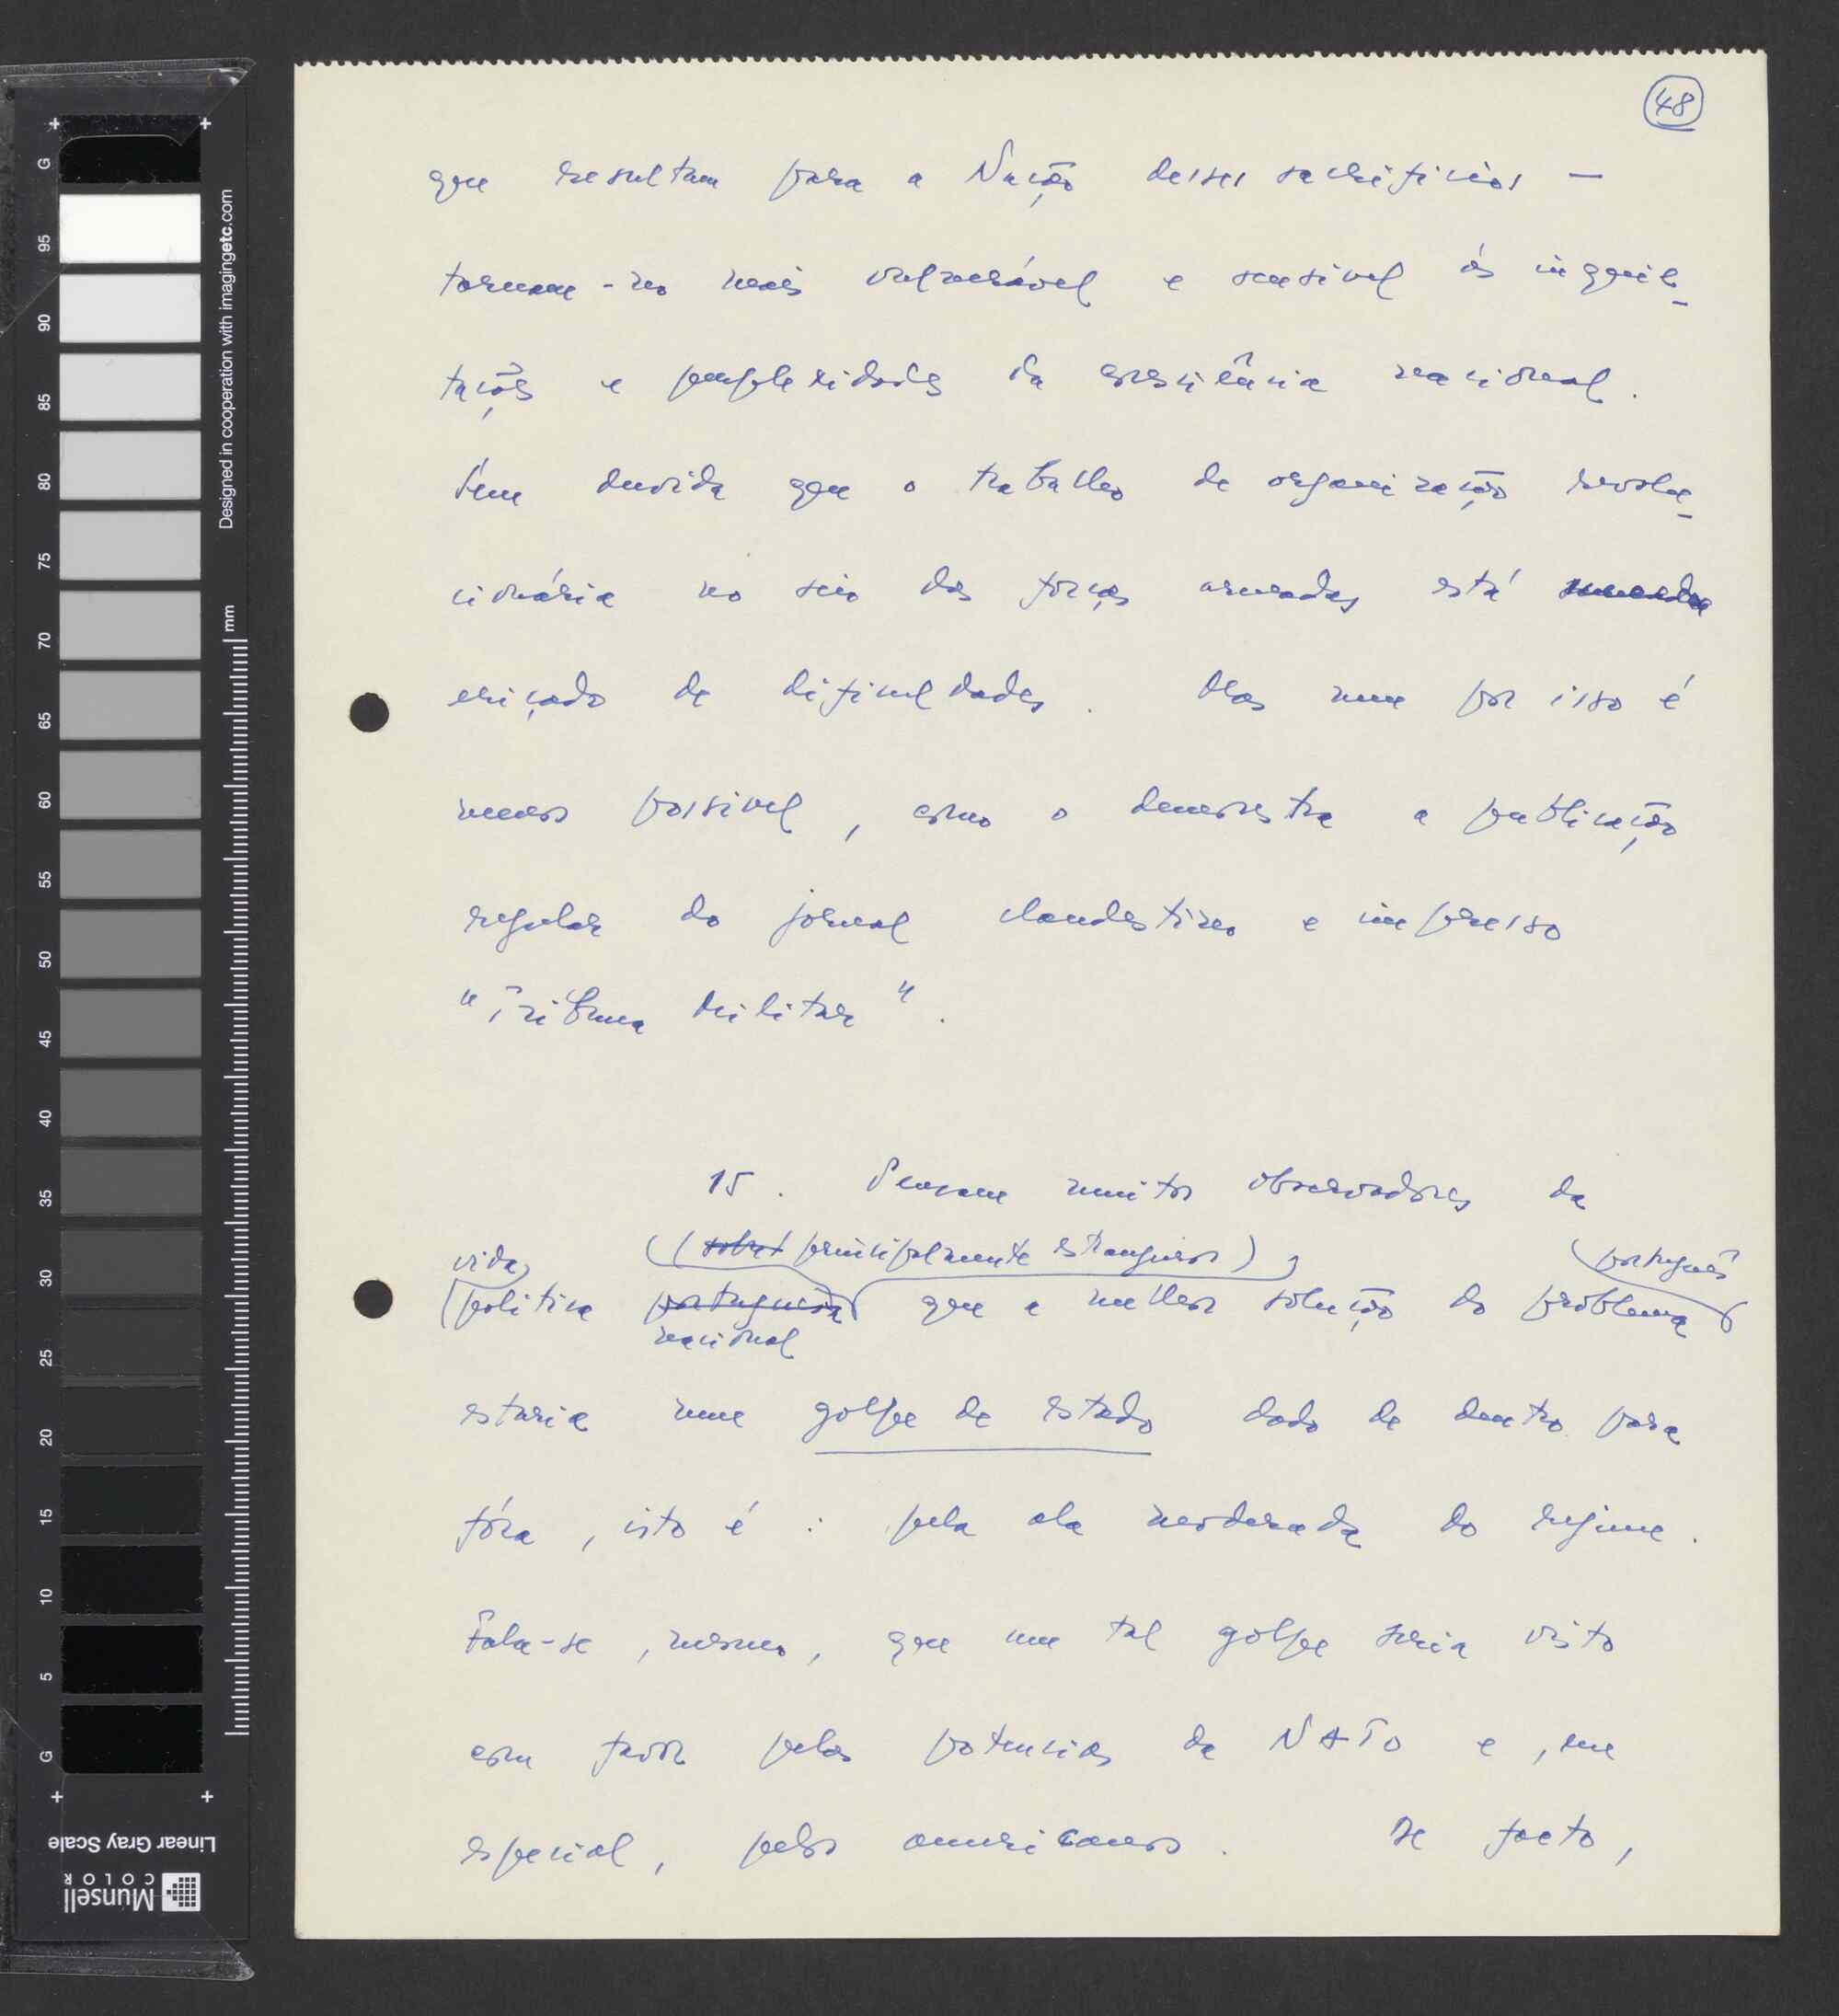 48
que resultam para a Nação desses sacrificios —
tornam-no mais vulnerável e sensivel ás inquie-
tações e perplexidades da consciência nacional.
Sem duvida que o trabalho de organização revolu-
cionária no seio das forças armadas está
eriçado de dificuldades. Mas nem por isso é
menos possivel, como o demonstra a publicação
regular do jornal clandestino e impresso
"Tribuna Militar".
15. Pensam muitos observadores da
vida (sobret principalmente estrangeiros), português
politica portuguesa que a melhor solução do problema
nacional
estaria num golpe de estado dado de dentro para
fóra, isto é: pela ala moderada do regime.
Fala-se, mesmo, que um tal golpe seria visto
com favor pelas potencias da NATO e, em
especial, pelos americanos. De facto,
Designed in cooperation with imagingetc.com
mm
G
95
90
85
80
75
70
65
60
55
50
45
40
35
30
25
20
15
10
5
G
Linear Gray Scale
Munsell
COLOR